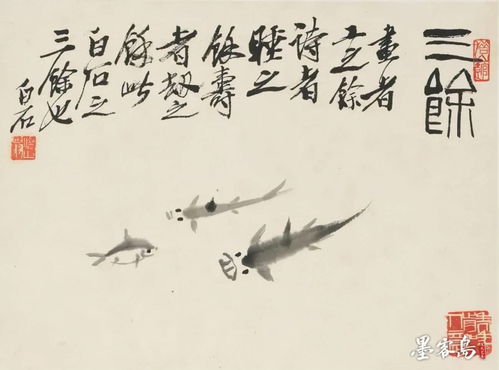 三餘
畫者
工之餘
詩者
睡之
餘壽
者劫之
餘此
白石之
三餘也
白石
墨客岛